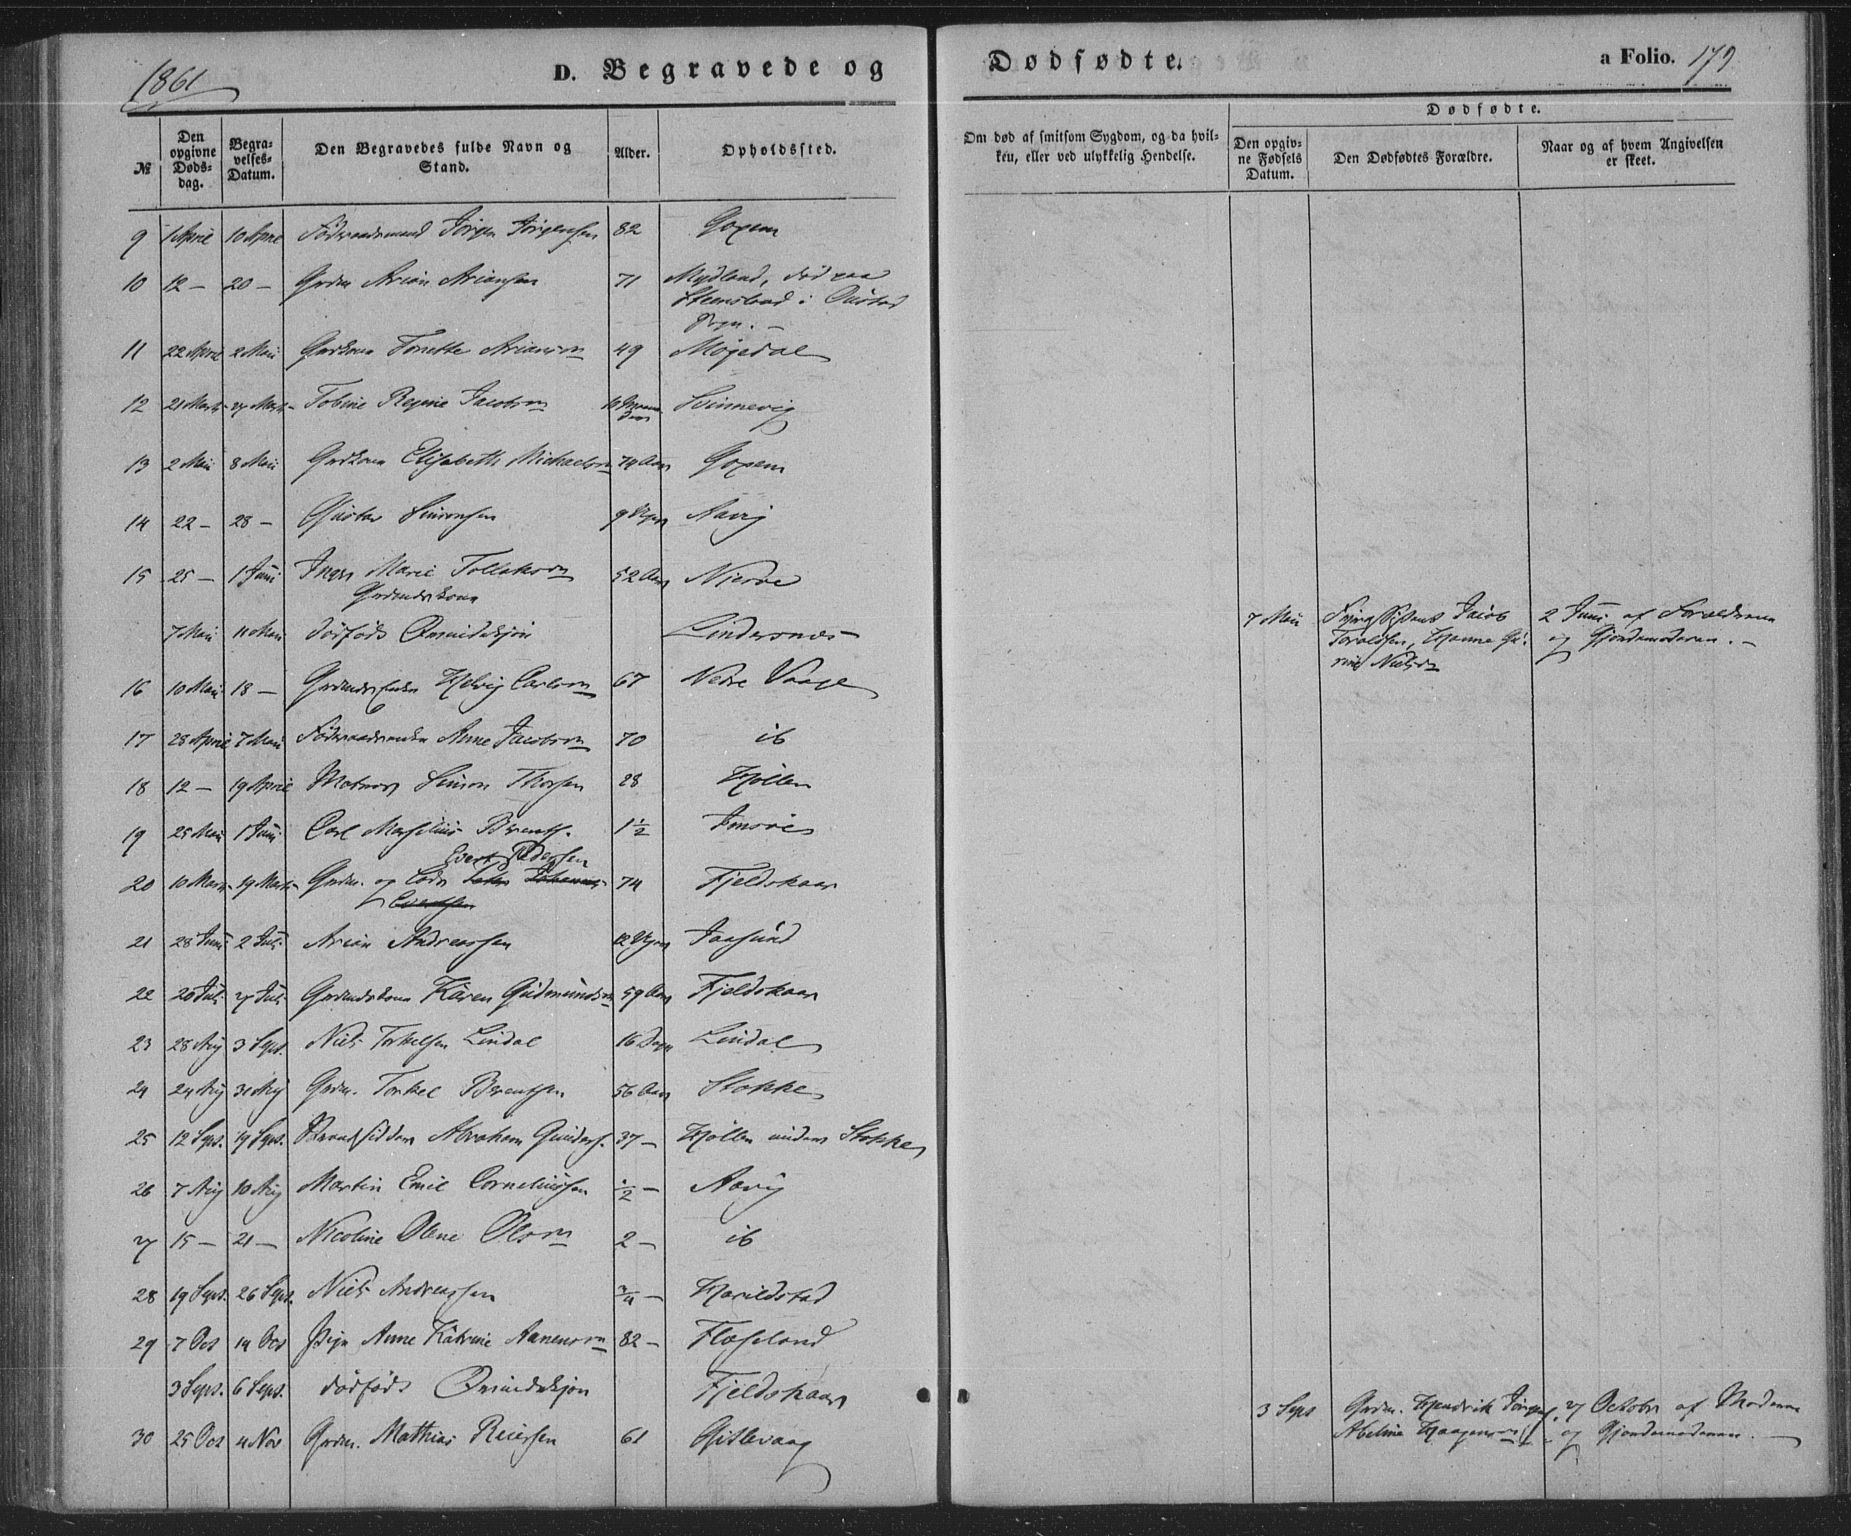 1861
D. Begravede og Dødfødte. a Folio. 179
№ Den opgivne Døds-dag. Begra-velses-Datum. Den Begravedes fulde Navn og Stand. Alder. Opholdssted. Om død af smitsom Sygdom, og da hvil-ken, eller ved ulykkelig Hendelse. Dødfødte. Den opgiv-ne Fødsels Datum. Den Dødfødtes Forældre. Naar og af hvem Angivelsen er skeet.
9 1 April 10 April Føderaadsmand Jörgen Jörgensen 82 Goxem
10 12 – 20 – Grdm Arian Ariansen 71 Mydland, død paa
Steensland i Oustad
Sogn. –
11 22 April 2 Mai Grdkone Tonette Ariansen 49 Møgedal
12 21 Marts 27 Marts Tobine Regine Jacobsen 10 Svinnevig
13 2 Mai 8 Mai Grdkone Elisabeth Michaelsen 74 Aar Goxem
14 22 – 28 – Gustav Simonsen 9 Uger Aavig
15 25 – 1 Juni Inger Marie Tollaksen 52 Aar Nierve
Grdmandskone
7 Mai 11 Mai dødfødt Qvindekjön Lindesnæs 7 Mai Fyrassistent Jacob 2 Juni af Forældrene
Toraldsen, Hanne Gu- og Gjordemoderen. –
rine Nielsen
16 10 Mai 18 – Grdmdsenke Helvig Carlsen 67 Nedre Vaage
17 28 April 7 Mai Føderaadsenke Anne Jacobsen 70 ib
18 12 – 19 April Matros Simon Thorsen 28 Høllen
19 25 Mai 1 Juni Carl Marselius Berents. 1½ Imsøe
Evert Pedersen
20 10 Marts 19 Marts Grdm. og Lods Johannes 74 Fjeldskaar
Evertsen
21 28 Juni 2 Juli Arian Andreassen 12 Uger Jaasund
22 20 Juli 27 Juli Grdmandskone Karen Gudmundsen 59 Aar Fjeldskaar
23 28 Aug 3 Sept. Niels Torkelsen Lindal 16 Dage Lindal
24 24 Aug 31 Aug Grdm. Torkel Berentsen 56 Aar Stokke
25 12 Sept. 19 Sept. Strandsidder Abraham Gunders. 37 – Høllen under Stokke
26 7 Aug 10 Aug Martin Emil Corneliussen ½ – Aavig
27 15 – 21 – Nicoline Olene Olsen 2 – ib
28 19 Sept. 26 Sept. Niels Andreassen ¾ – Harildstad
29 7 Oct 14 Oct Pige Anne Katrine Aanensen 82 – Flaseland
3 Sept. 6 Sept. dødfødt Qvindekjön Fjeldskaar 3 Sept Grdm. Hendrik Jörgens. 27 October af Moderen
Abeline Haagensen og Gjordemoderen.
30 25 Oct 4 Nov Grdm. Mathias Reiersen 61 Gitlevaag